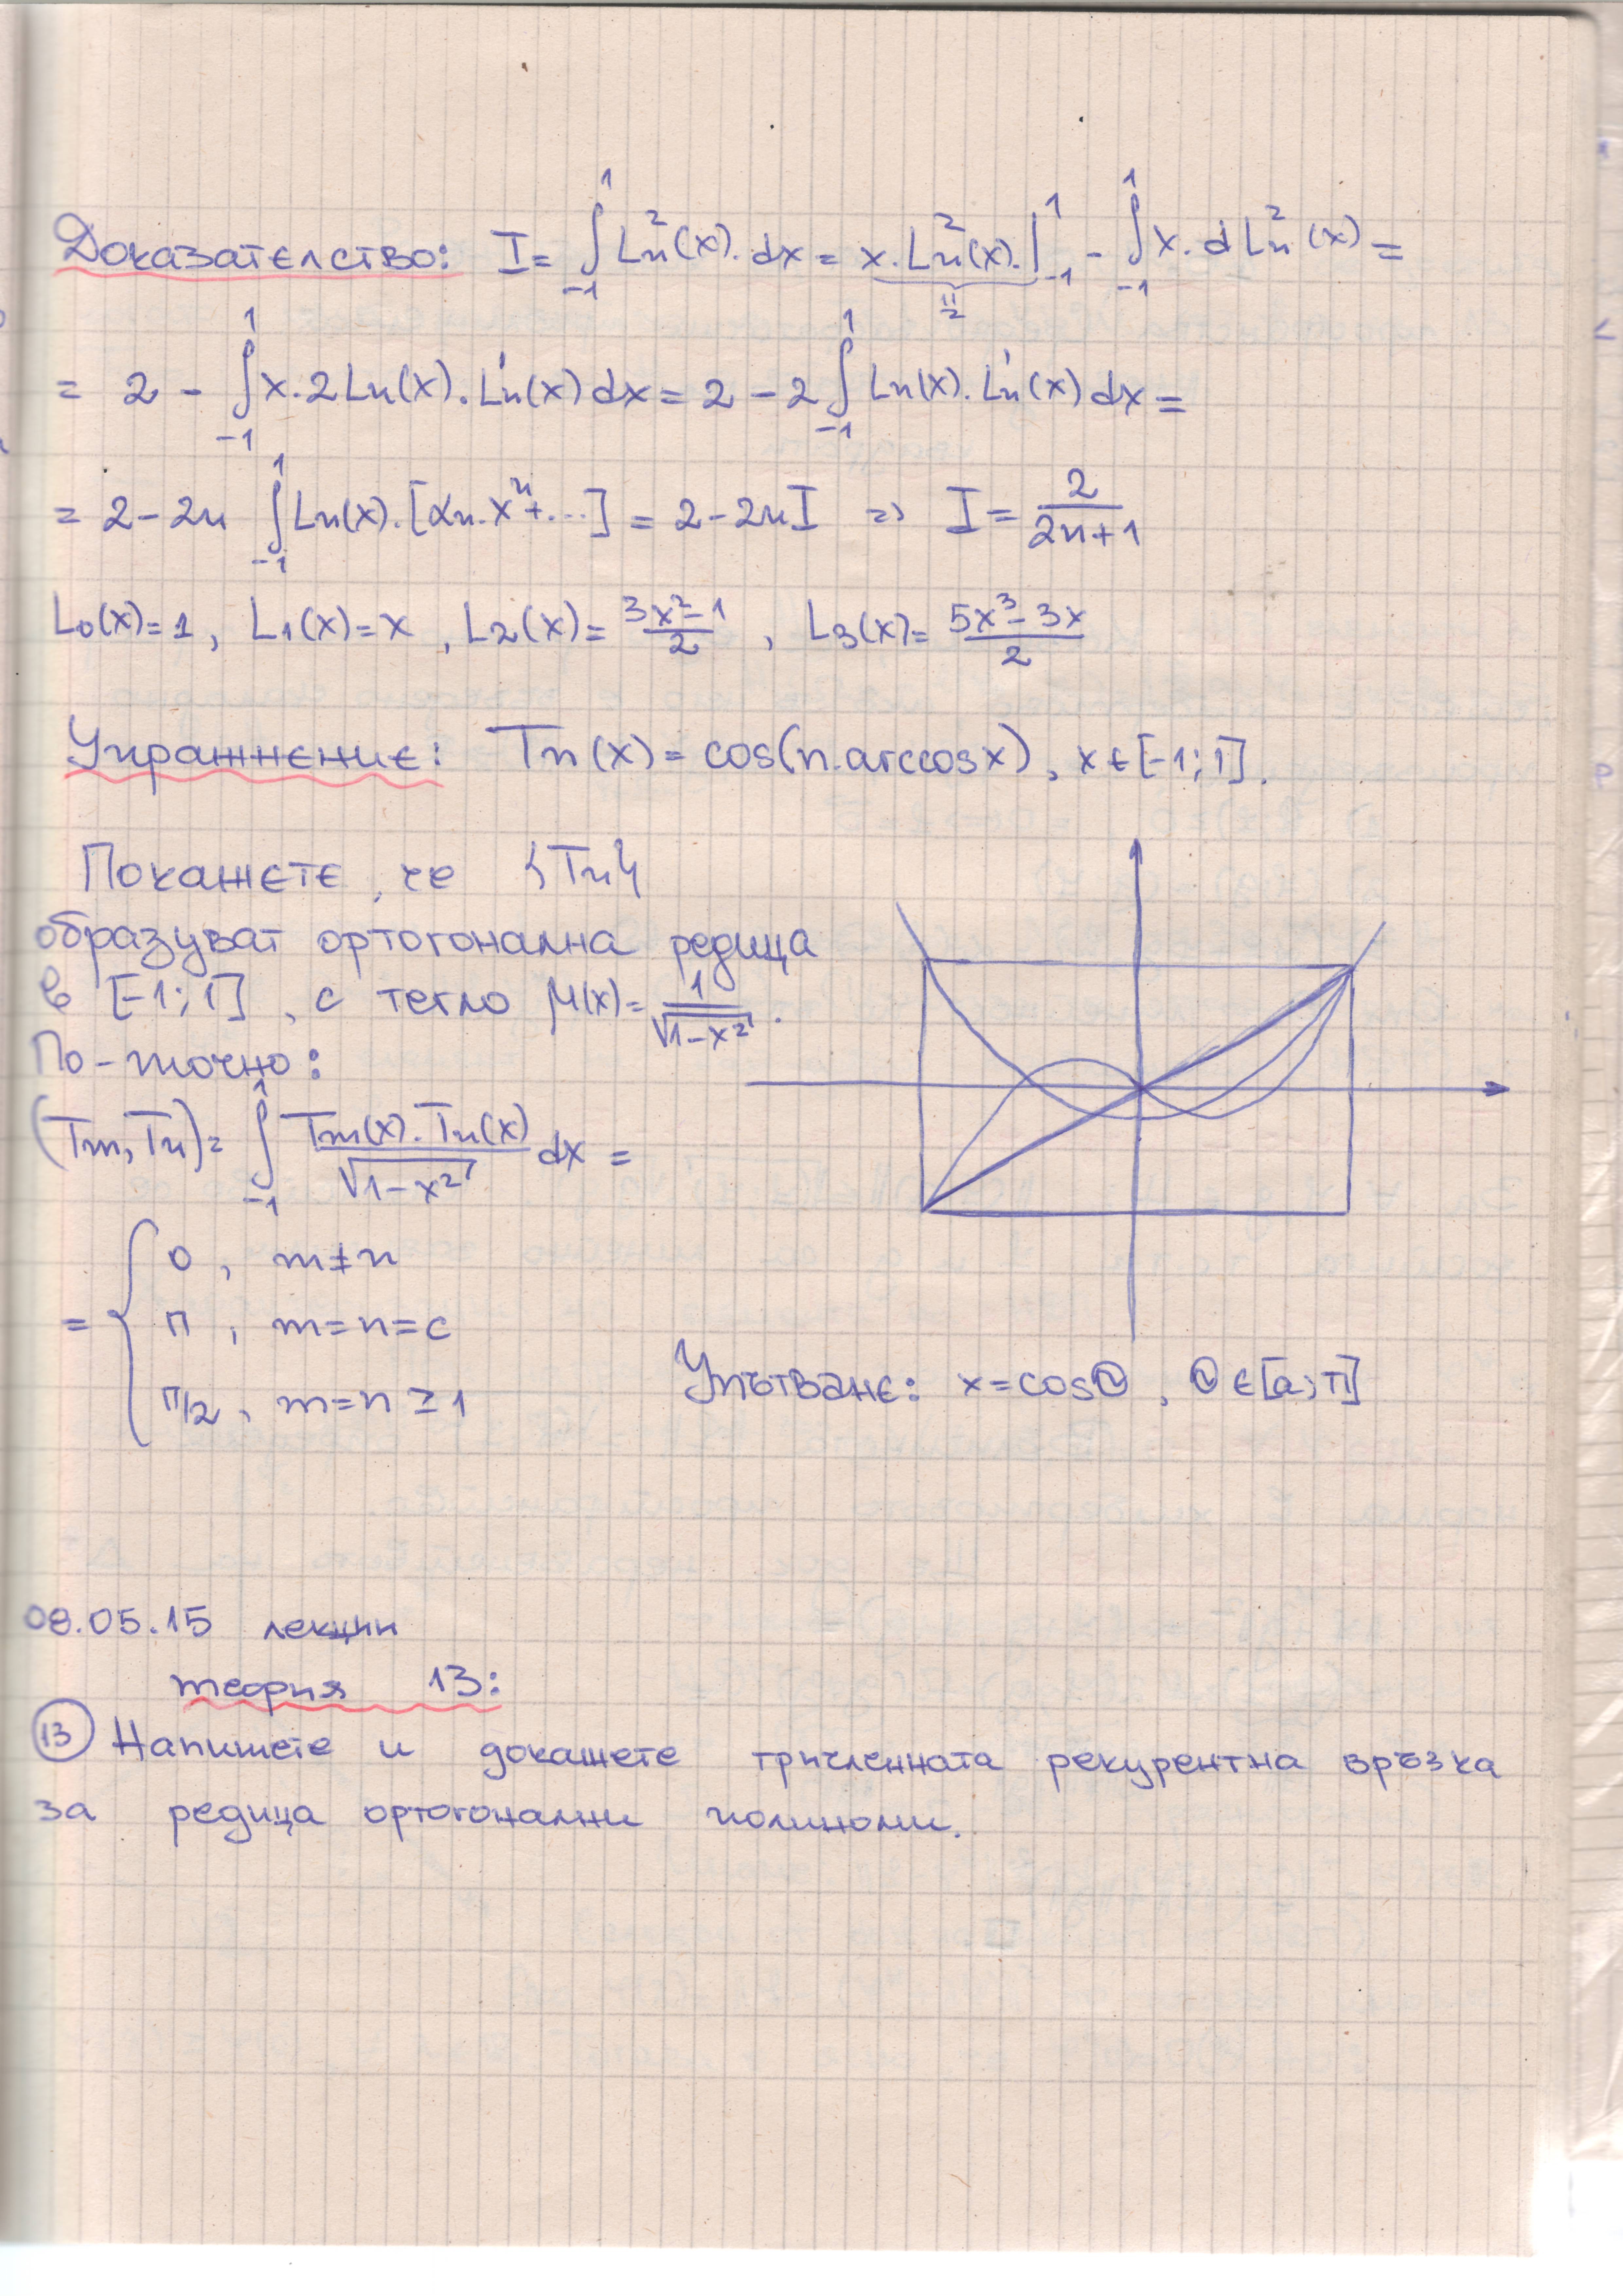 Доказателство: I = ∫₋₁¹ Ln²(x). dx = x. Ln²(x).|₋₁¹ - ∫₋₁¹ x. d Ln²(x) =
= 2
= 2 - ∫₋₁¹ x. 2 Ln(x). Ln'(x) dx = 2 - 2 ∫₋₁¹ Ln(x). Ln'(x) dx =
= 2 - 2n ∫₋₁¹ Ln(x). [αn. xⁿ + ...] = 2 - 2nI => I = 2/(2n+1)
L₀(x) = 1, L₁(x) = x, L₂(x) = (3x² - 1)/2, L₃(x) = (5x³ - 3x)/2
Упражнение: Tn(x) = cos(n. arccos x), x ∈ [-1; 1].
Покажете, че {Tn}
образуват ортогонална редица
в [-1; 1], с тегло μ(x) = 1/√(1-x²).
По-точно:
(Tm, Tn) = ∫₋₁¹ Tm(x). Tn(x)/√(1-x²) dx =
= { 0, m ≠ n
π, m = n = c
π/2, m = n ≥ 1
Упътване: x = cos Θ, Θ ∈ [a; π]
08.05.15 лекции
теория 13:
13 Напишете и докажете тричленната рекурентна връзка
за редица ортогонални полиноми.